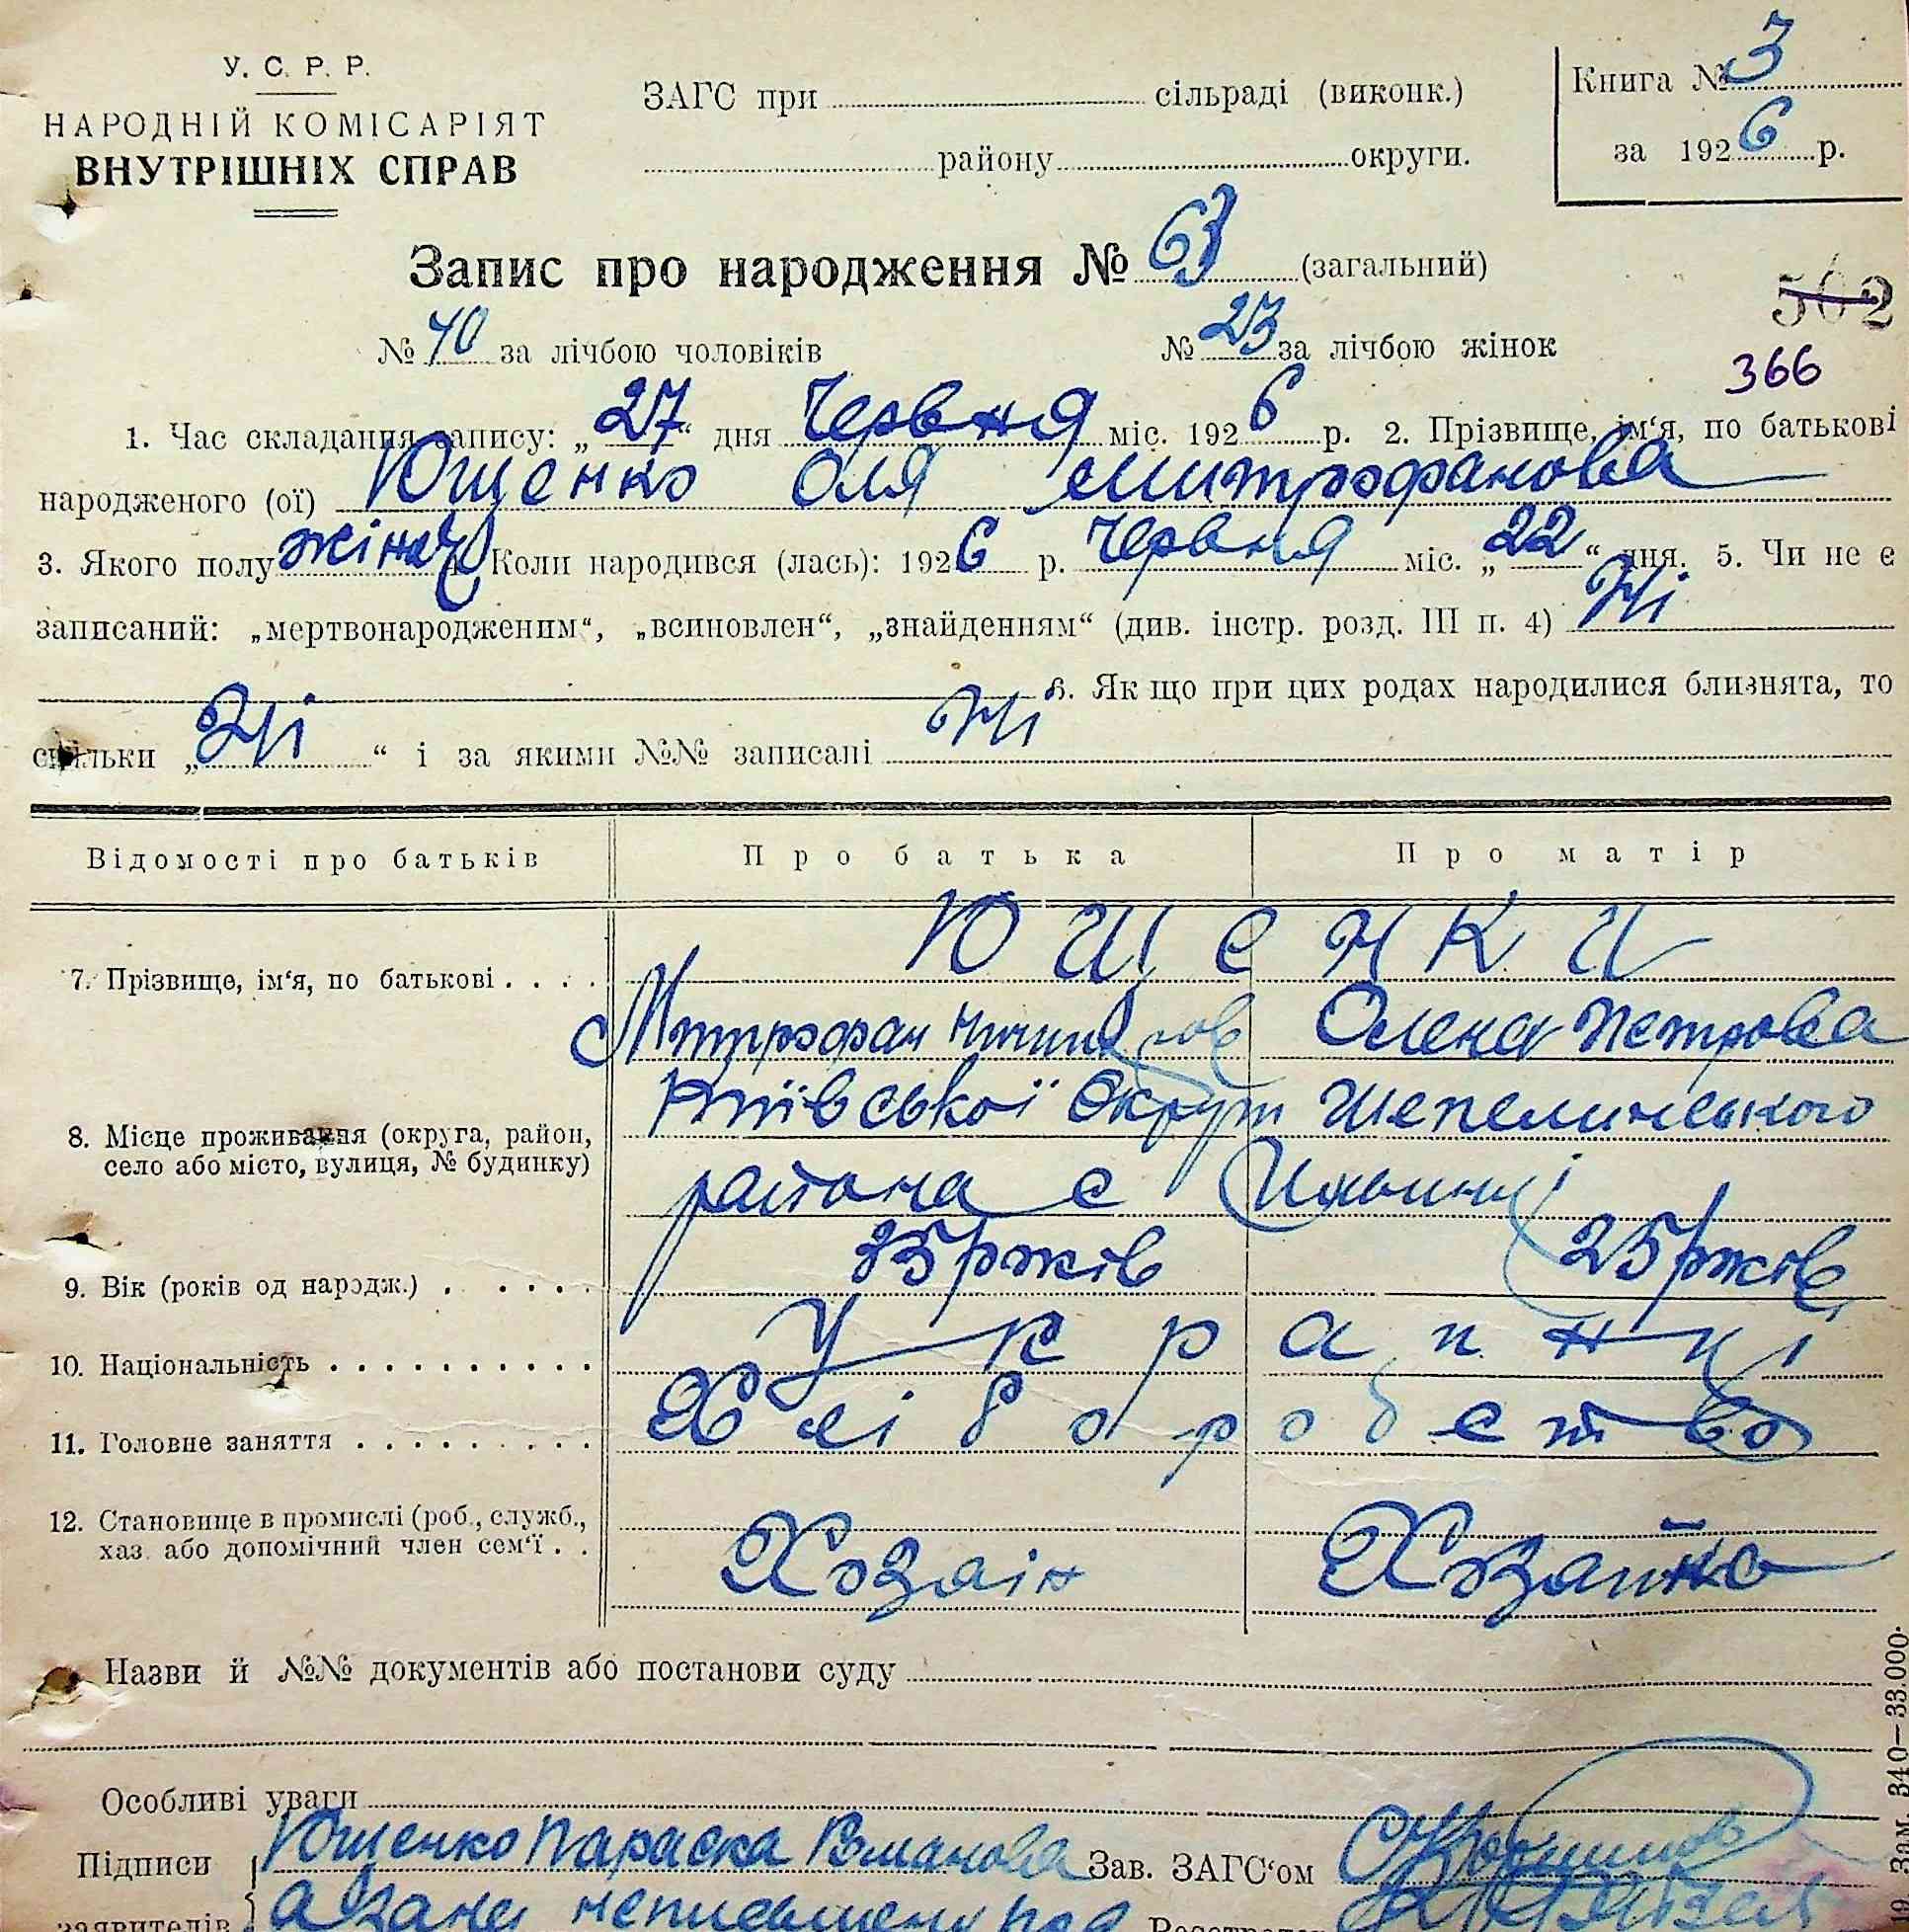 У. С. Р. Р.
НАРОДНІЙ КОМІСАРІЯТ
ВНУТРІШНІХ СПРАВ
ЗАГС при сільраді (виконк.)
району округи.
Книга № 3
за 1926 р.
Запис про народження № 63 (загальний)
502
№ 40 за лічбою чоловіків № 23 за лічбою жінок
366
1. Час складання запису: „27“ дня Червня міс. 1926 р. 2. Прізвище, ім‘я, по батькові
народженого (ої) Ющенко Оля Митрофанова
3. Якого полу жіноч 4. Коли народився (лась): 1926 р. Червня міс. „22“ дня. 5. Чи не є
записаний: „мертвонародженим“, „всиновлен“, „знайденням“ (див. інстр. розд. III п. 4) Ні
6. Як що при цих родах народилися близнята, то
скільки „Ні“ і за якими №№ записані Ні
Відомості про батьків Про батька Про матір
Ющенки
7. Прізвище, ім‘я, по батькові . . . .
Митрофан Олена Петрова
Київської Округи Шепелицького
8. Місце проживання (округа, район,
село або місто, вулиця, № будинку)
района с
9. Вік (років од народж.) . . . . . 25 років
10. Національність . . . . . . . . . . Українці
11. Головне заняття . . . . . . . . . Хліборобство
12. Становище в промислі (роб., служб.,
хаз. або допомічний член сем‘ї . .
Хозаін Хозайка
Назви й №№ документів або постанови суду
Особливі уваги
Підписи Ющенко Параска Зав. ЗАГС‘ом
заявителів а за неї неписьмену
Зам. 340—33.000.